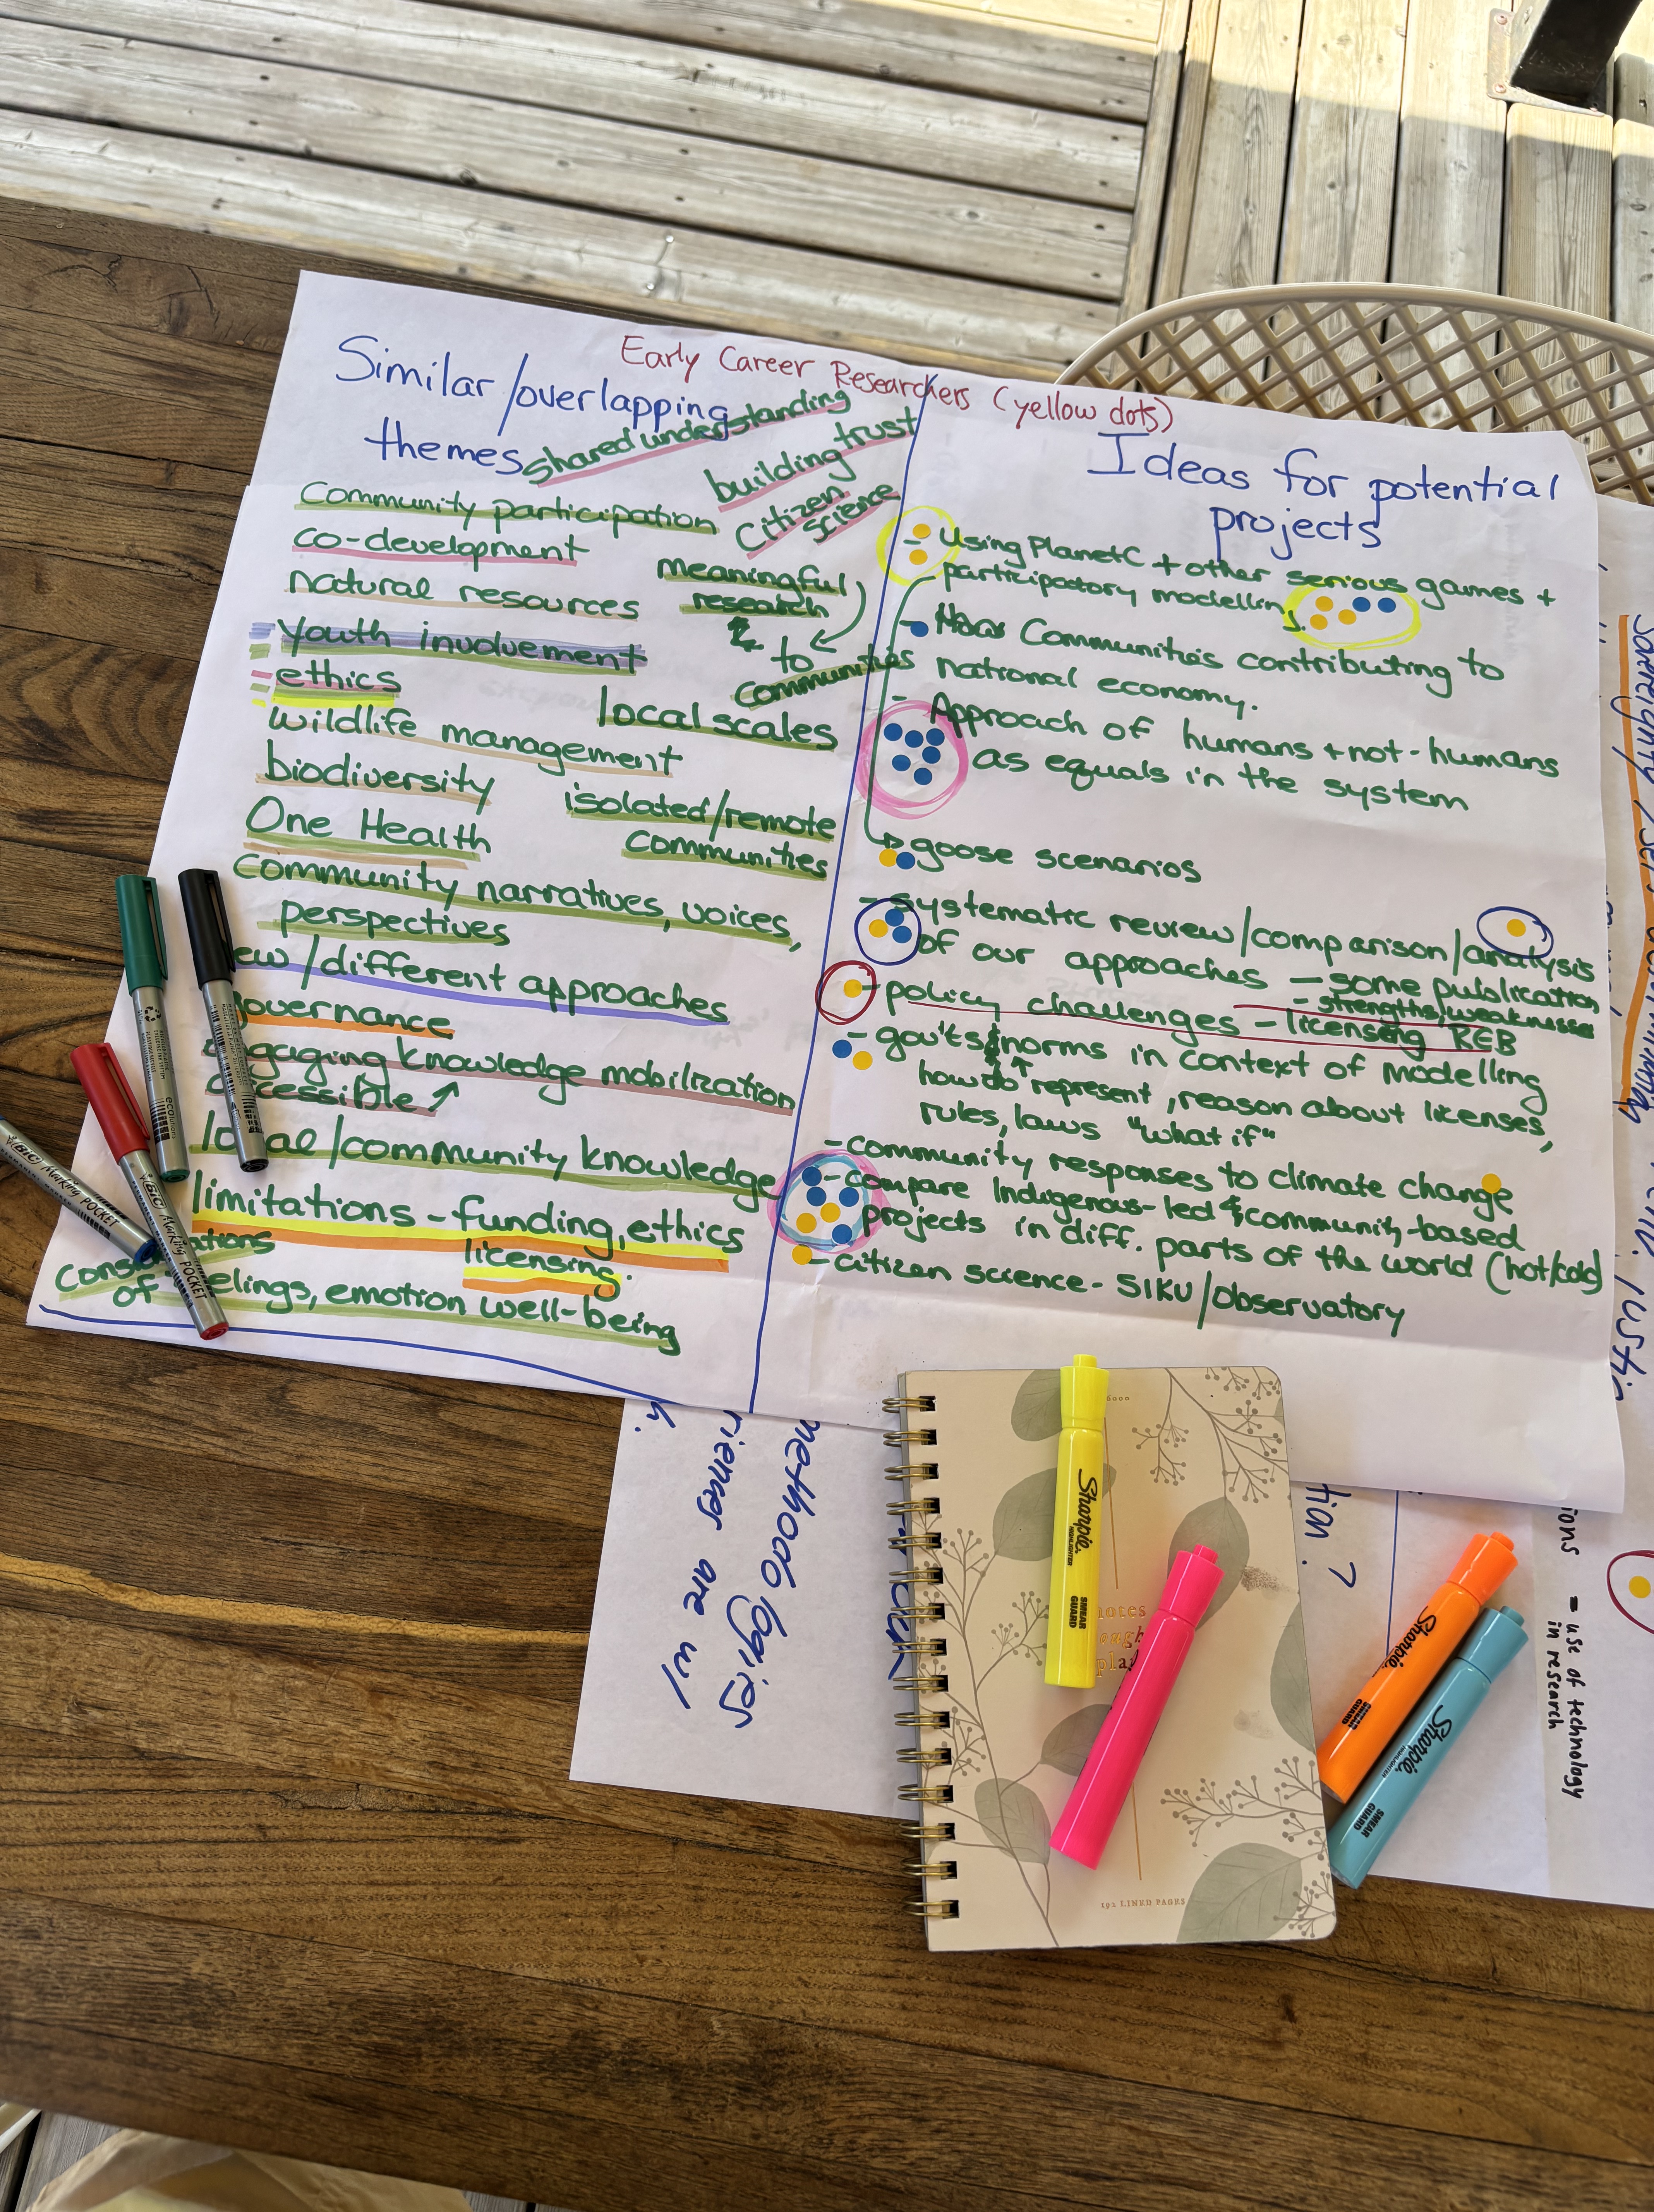 Early Career Researchers (yellow dots)
Similar/overlapping
themes
shared understanding
building trust
citizen
science
Community participation
co-development
natural resources
meaningful
research
to
communities
youth involvement
ethics
local scales
wildlife management
biodiversity
isolated/remote
communities
One Health
community narratives, voices,
perspectives
ew/different approaches
governance
gaging knowledge mobilization
accessible
local/community knowledge
limitations - funding, ethics
licensing.
ations
of elings, emotion well-being
Ideas for potential
projects
- Using PlanetC + other serious games +
participatory modelling
- Communities contributing to
national economy.
- Approach of humans + not-humans
as equals in the system
goose scenarios
- systematic review/comparison/analysis
of our approaches - some publication
- strengths/weaknesses
- policy challenges - licensing REB
- gov'ts & norms in context of modelling
how do represent, reason about licenses,
rules, laws "what if"
- community responses to climate change
- compare Indigenous-led & community-based
projects in diff. parts of the world (hot/cold)
- citizen science - SIKU/observatory
methodologies
are w/
tion?
ions
- use of technology
in research
BIC Marking POCKET
BIC Marking POCKET
ecolutions
Sharpie.
HIGHLIGHTER
SMEAR
GUARD
Sharpie.
SMEAR
GUARD
Sharpie.
HIGHLIGHTER
SMEAR
GUARD
notes
192 LINED PAGES